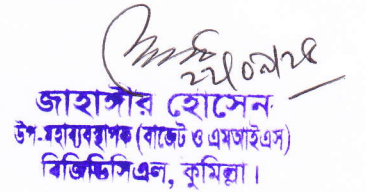 ২২০৯২৪
জাহাঙ্গীর হোসেন
উপ-মহাব্যবস্থাপক (বাজেট ও এমআইএস)
বিজিডিসিএল, কুমিল্লা।